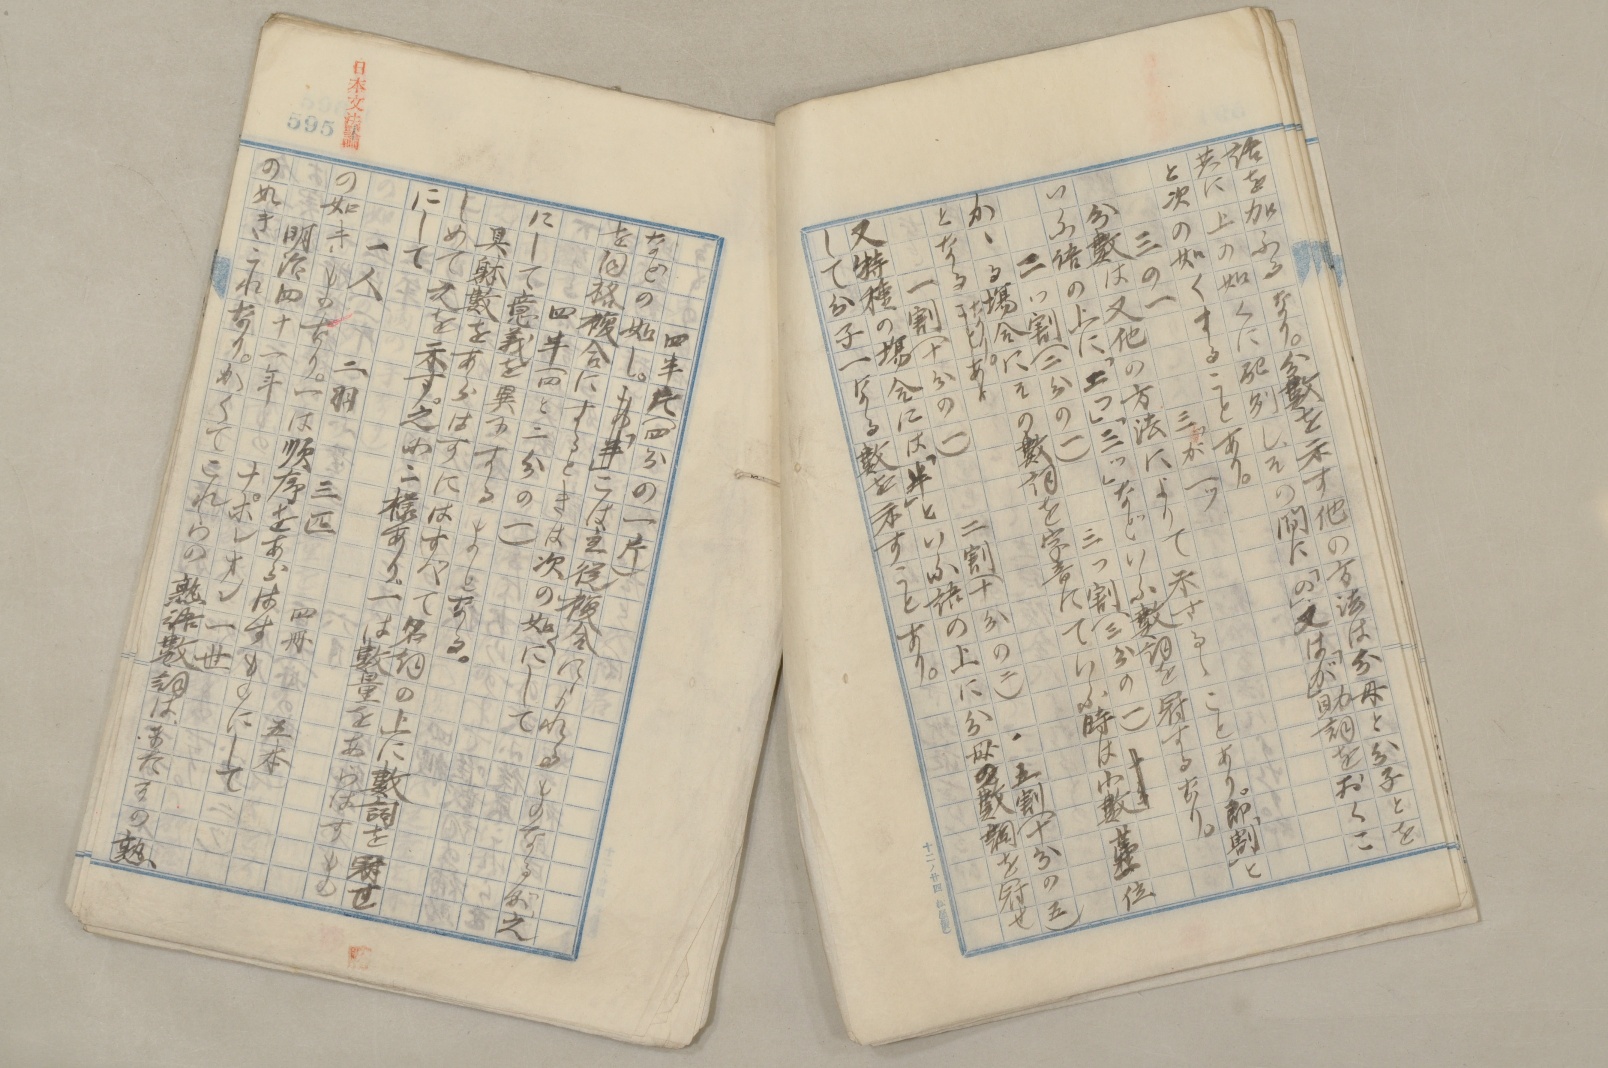 語を加ふるなり。分數を示す他の方法は分母と分子とを
共に上の如くに配列しその間に「の」又は「が」助詞をおくこ
と次の如くすることあり。
三の一 三が一ツ
分數は又他の方法によりて示さるゝことあり。即「割」と
いふ語の上に「二つ」「三ッ」などいふ數詞を冠するなり。
二ッ割(二分の一) 三つ割(三分の一)
かゝる場合にその數詞を字音にていふ時は小數 位
となることあり
一割(十分の一) 二割(十分の二) 五割(十分の五)
又特種の場合には「半」といふ語の上に分母の數詞を冠せ
して分子一なる數を示すことあり。
十二ノ廿四
四半斤(四分の一斤)
などの如し。この「半」は主從複合によれるものなるが、之
を同格複合にするときは次の如くにして
四半(四と二分の一)
にして意義を異にするものとなる。
具躰數をあらはすにはすべて名詞の上に數詞を冠せ
しめて之を示す。之に二樣あり、一は數量をあらはすも
にして
一人 二羽 三匹 四冊 五本
の如きものなり。一は順序をあらはすものにして
明治四十二年 ナポレオン一世
の如きこれなり。かくてこれらの熟語數詞はまたその熟
595
日本文法論